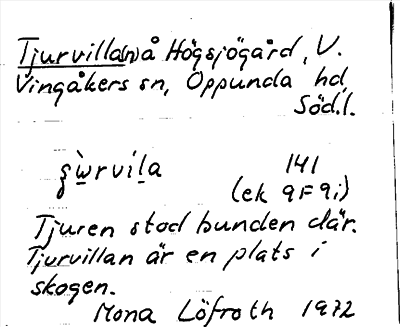 Tjurvilla(n) å Högsjögård, V.
Vingåkers sn, Oppunda hd,
Söd.l.
ʂẁrvíl̠a 141
(ek 9F9i)
Tjuren stod bunden där.
Tjurvillan är en plats i
skogen.
Mona Löfroth 1972